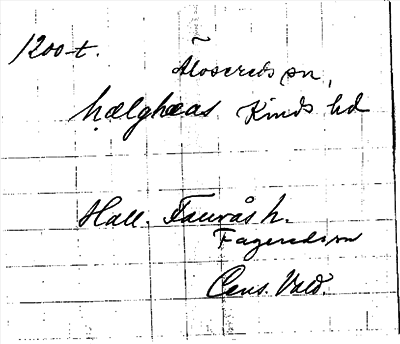 1200-t.
Mosereds sn,
hælghæas Kinds hd
Hall. Fauråsh.
Fagereds sn
Cens. Vald.